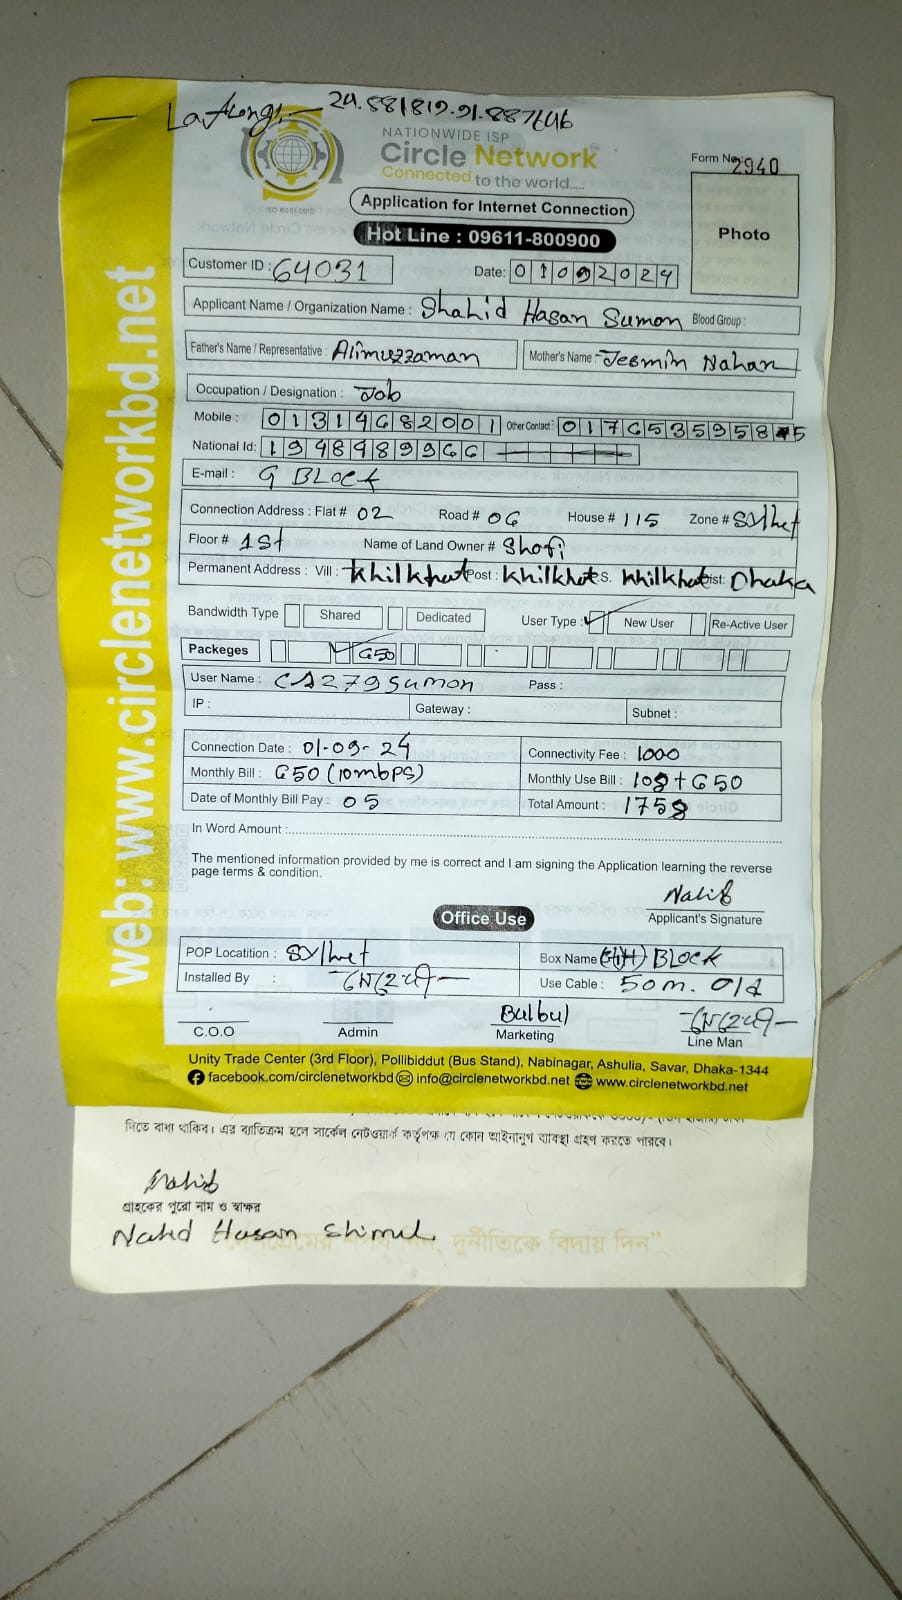 Lat Long:- 24.881819.91.887646
NATIONWIDE ISP
Circle Network
Connected to the world.....
ISO 9001:2015
Form No: 2940
Application for Internet Connection
Photo
Hot Line : 09611-800900
Customer ID : 64031 Date: 01092024
Applicant Name / Organization Name : Shahid Hasan Sumon Blood Group :
Father's Name / Representative : Alimuzzaman Mother's Name : Jesmin Nahan
Occupation / Designation : Job
Mobile : 01314682001 Other Contact : 0176535958 5
National Id: 1948489966
E-mail : G BLOCK
Connection Address : Flat # 02 Road # 06 House # 115 Zone # Sylhet
Floor # 1st Name of Land Owner # Shofi
Permanent Address : Vill : Khilkhat Post : Khilkhet P.S. Khilkhat Dist: Dhaka
Bandwidth Type Shared Dedicated User Type : New User Re-Active User
Packeges 650
User Name : CS279sumon Pass :
IP : Gateway : Subnet :
Connection Date : 01-09-24 Connectivity Fee : 1000
Monthly Bill : 650 (10mbps) Monthly Use Bill : 108+650
Date of Monthly Bill Pay : 05 Total Amount : 1758
In Word Amount :
The mentioned information provided by me is correct and I am signing the Application learning the reverse
page terms & condition.
Nahid
Applicant's Signature
Office Use
POP Locatition : Sylhet Box Name BLOCK
Installed By : Use Cable : 50m.
C.O.O Admin Bulbul Marketing Line Man
Unity Trade Center (3rd Floor), Pollibiddut (Bus Stand), Nabinagar, Ashulia, Savar, Dhaka-1344
facebook.com/circlenetworkbd info@circlenetworkbd.net www.circlenetworkbd.net
web: www.circlenetworkbd.net
দিতে বাধ্য থাকিব। এর ব্যতিক্রম হলে সার্কেল নেটওয়ার্ক কর্তৃপক্ষ যে কোন আইনানুগ ব্যবস্থা গ্রহণ করতে পারবে।
Nahid
গ্রাহকের পুরো নাম ও স্বাক্ষর
Nahid Hasan Shimul
দিন, দুর্নীতিকে বিদায় দিন"